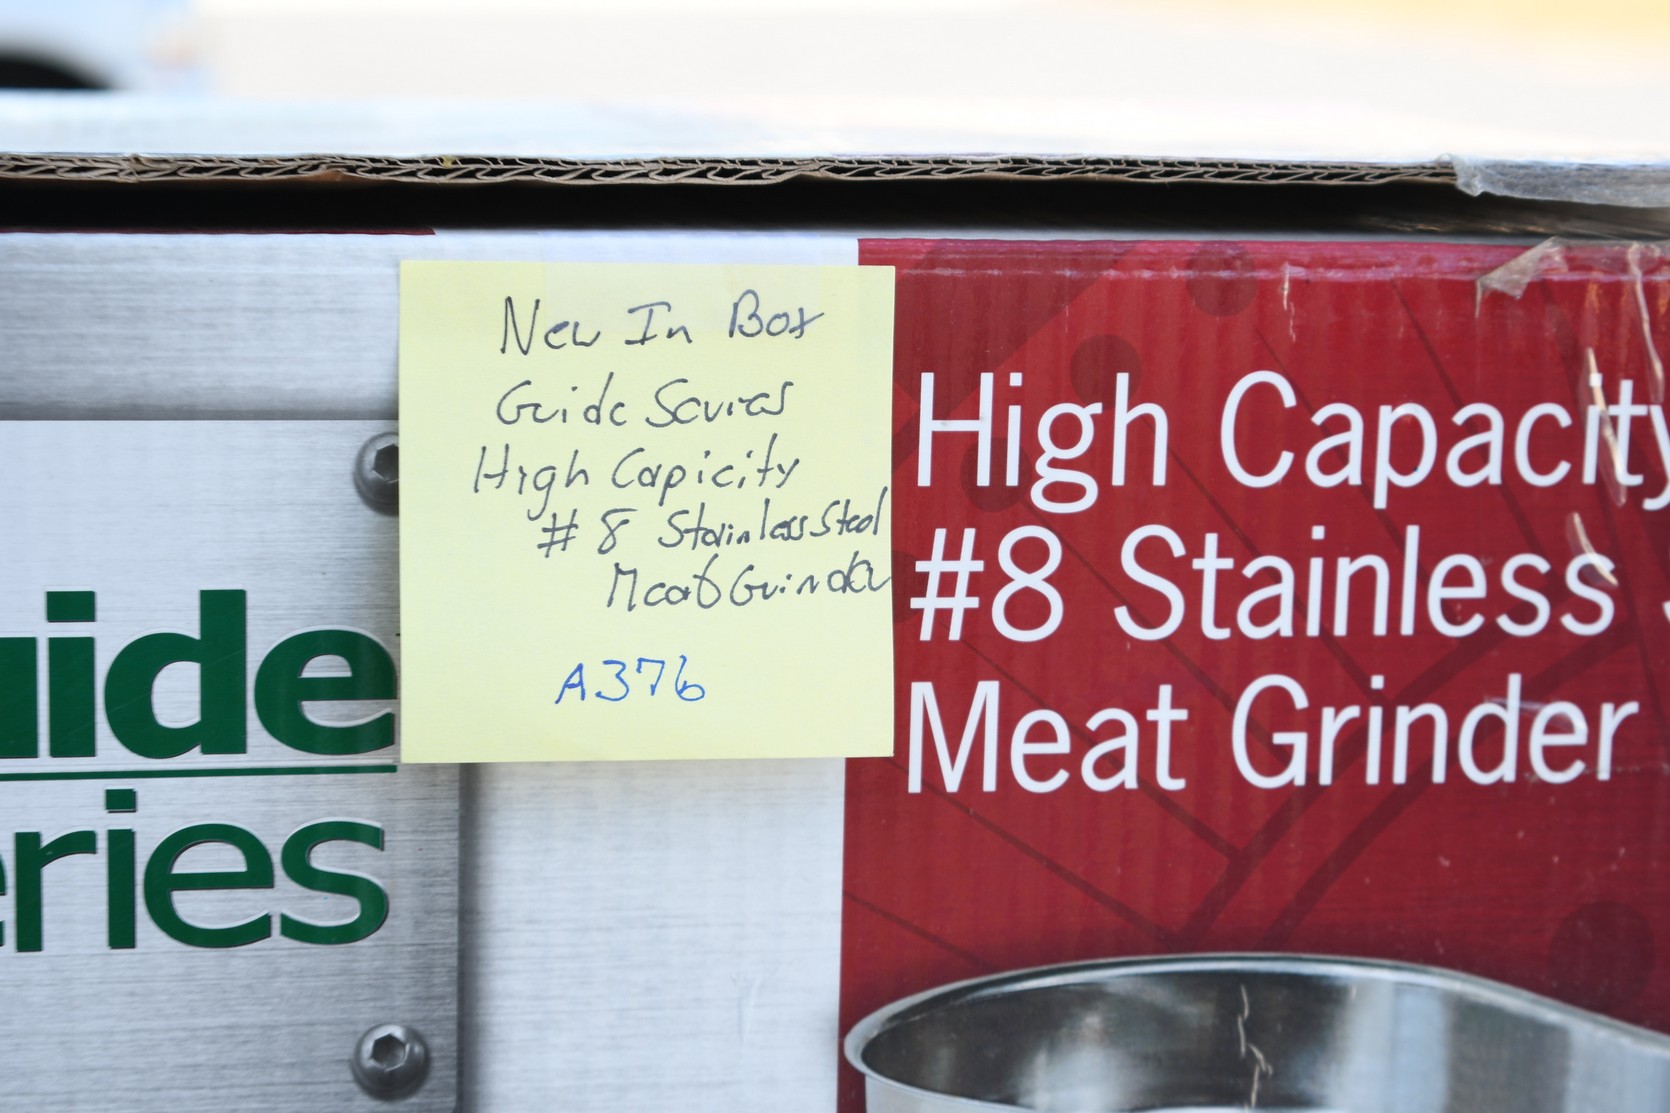 New In Box
Guide Series
High Capicity
#8 Stainless Steel
Meat Grinder
A376
uide
eries
High Capacity
#8 Stainless
Meat Grinder